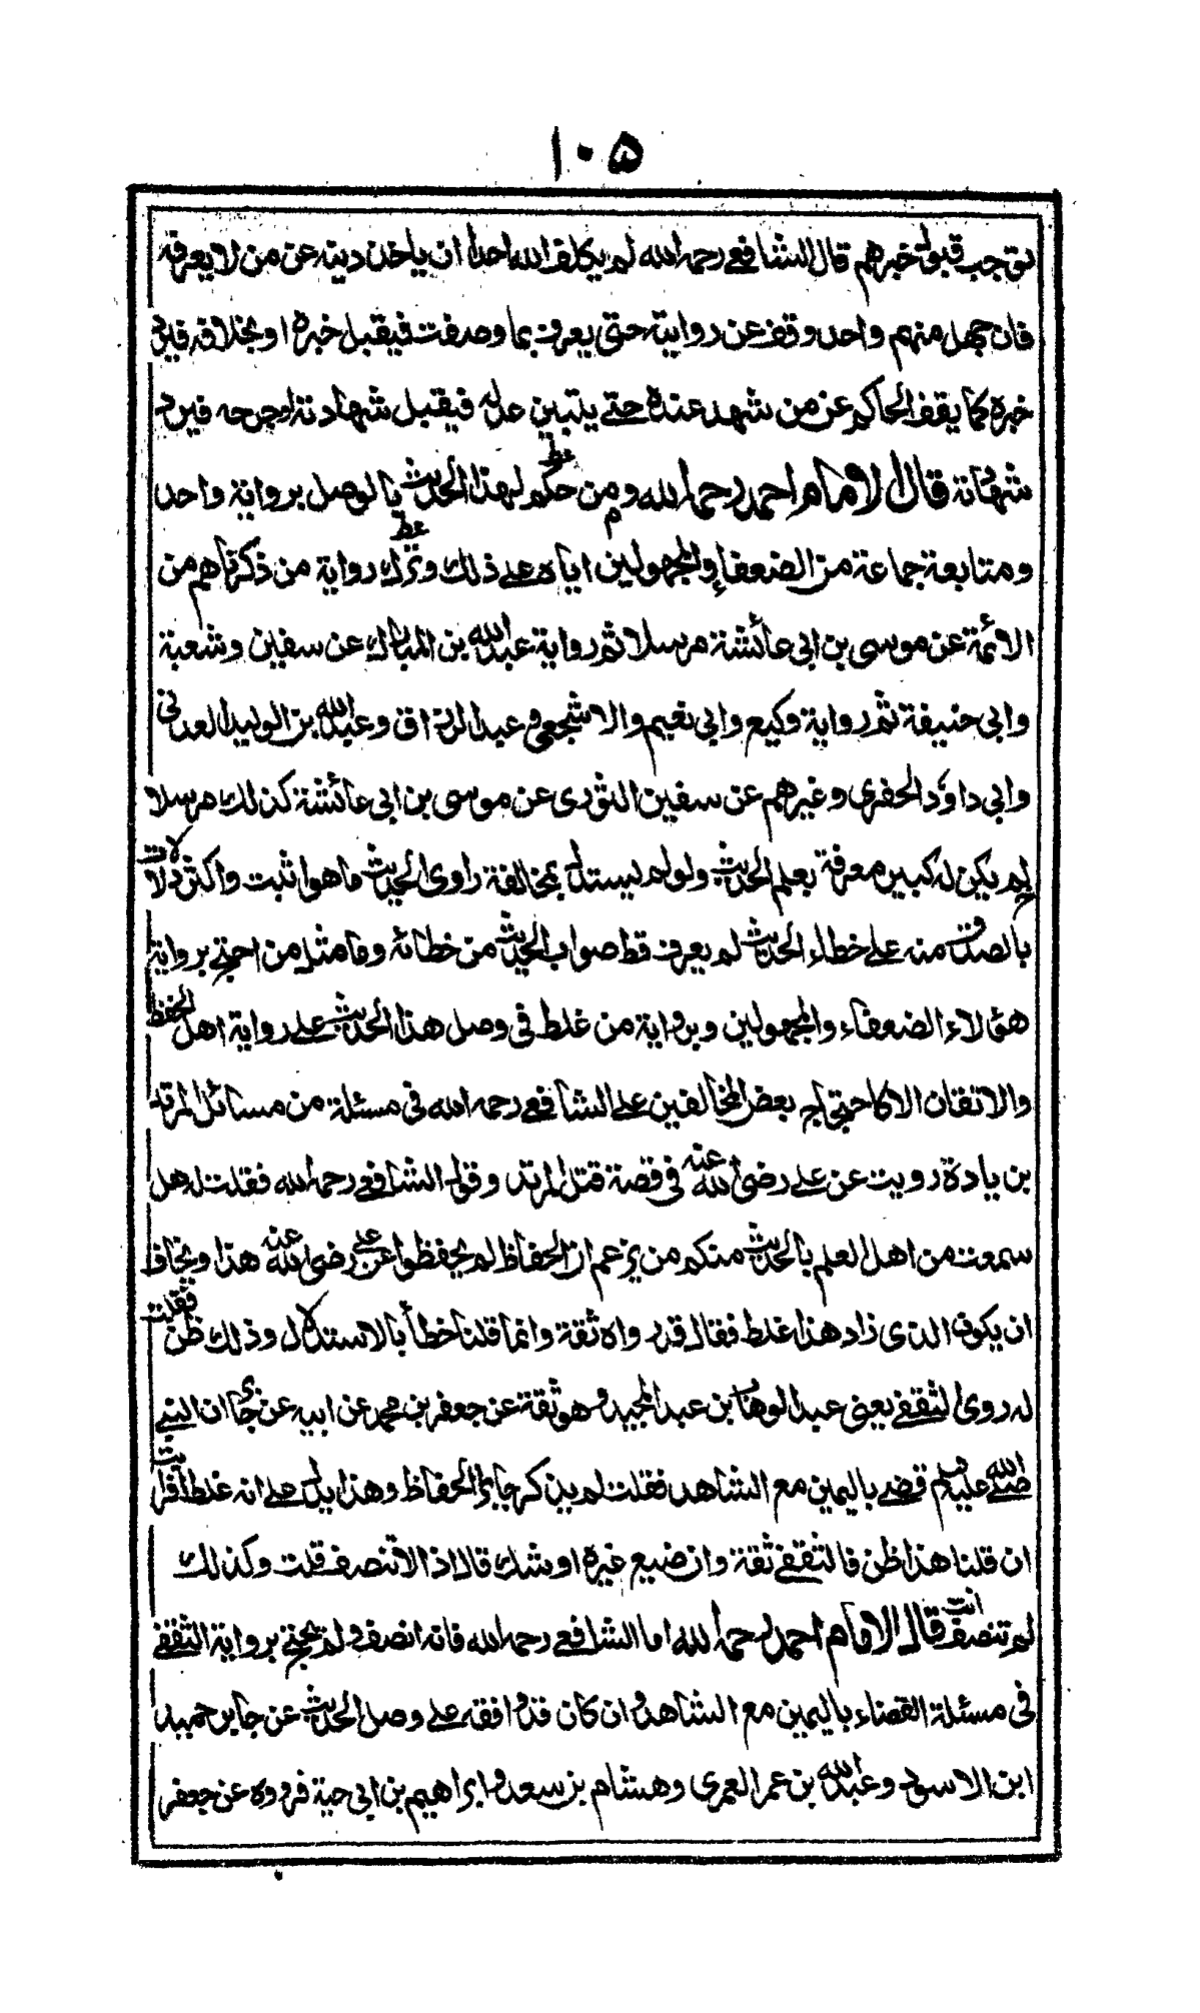 ١٠٥
توجب قبول خبرهم قال الشافعي رحمه الله لم يكلف الله احدا ان ياخذ دينه عن من لا يعرفه
فان جهل منهم واحد وقف عن روايته حتى يعرف بما وصفت فيقبل خبره او بخلافه فيرد
خبره كما يقف الحاكم عن من شهد عنده حتى يتبين عدله فيقبل شهادته او جرحه فيرد
شهادته قال الامام احمد رحمه الله ومن حكم لهذا الحديث بالوصل برواية واحد
ومتابعة جماعة من الضعفاء والمجهولين اياه على ذلك وترك رواية من ذكرناهم من
الائمة عن موسى بن ابي عائشة مرسلا ثم رواية عبد الله بن المبارك عن سفين وشعبة
وابي حنيفة ثم رواية وكيع وابي نعيم والاشجعي وعبد الرزاق وعبد الله بن الوليد العدني
وابي داود الحفري وغيرهم عن سفين الثوري عن موسى بن ابي عائشة كذلك مرسلا
لم يكن له كبير معرفة بعلم الحديث ولو لم يستدل بمخالفة راوي الحديث ما هو اثبت واكثر دلالات
بالصدق منه على خطاء الحديث لم يعرف قط صواب الحديث من خطائه وما مثل من احتج برواية
هؤلاء الضعفاء والمجهولين وبرواية من غلط في وصل هذا الحديث على رواية اهل الحفظ
والاتقان الا كاحتجاج بعض المخالفين على الشافعي رحمه الله في مسئلة من مسائل المرتد
بزيادة رويت عن علي رضي الله عنه في قصة قتل المرتد وقول الشافعي رحمه الله فقلت له هل
سمعت من اهل العلم بالحديث منكم من يزعم ان الحفاظ لم يحفظوا عن علي رضي الله عنه هذا ويخاف
ان يكون الذي زاد هذا غلط فقال قد رواه ثقة وانما قلنا خطأ بالاستدلال وذلك ظن فقلت
له روى الثقفي يعني عبد الوهاب بن عبد المجيد وهو ثقة عن جعفر بن محمد عن ابيه عن جابر ان النبي
صلى الله عليه وسلم قضى باليمين مع الشاهد فقلت لم يذكر جابرا الحفاظ وهذا يدل على انه غلط افرايت
ان قلنا هذا ظن فالثقفي ثقة وان ضيع غيره او شك قال اذا لا تنصف قلت وكذلك
لم تنصف انت قال الامام احمد رحمه الله اما الشافعي رحمه الله فانه انصف ولم يحتج برواية الثقفي
في مسئلة القضاء باليمين مع الشاهد وان كان قد وافقه على وصل الحديث عن جابر حميد
ابن الاسود وعبد الله بن عمر العمري وهشام بن سعد وابراهيم بن ابي حية فرووه عن جعفر